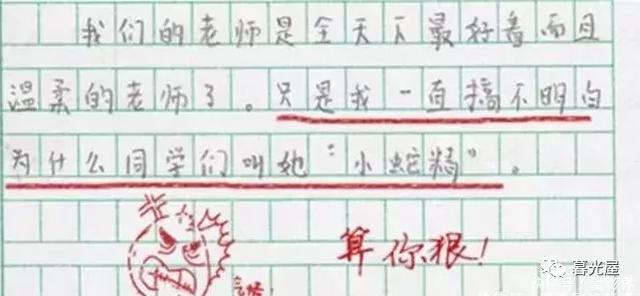 我们的老师是全天下最好看而且
温柔的老师了。只是我一直搞不明白
为什么同学们叫她“小蛇精”。
算你狠！
暮光屋